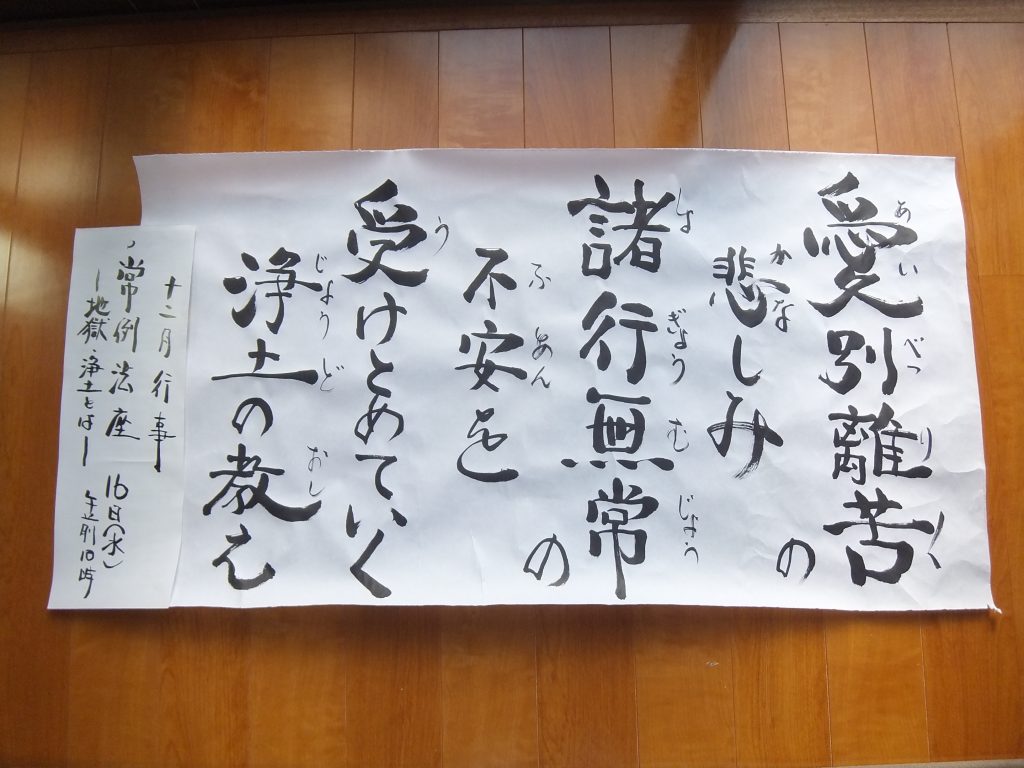 愛別離苦の
あい べつ り く
悲しみ
かな
諸行無常の
しょ ぎょう む じょう
不安を
ふ あん
受けとめていく
う
浄土の教え
じょう ど おし
十二月行事
常例法座 16日(水)
午前10時
―地獄・浄土とは―